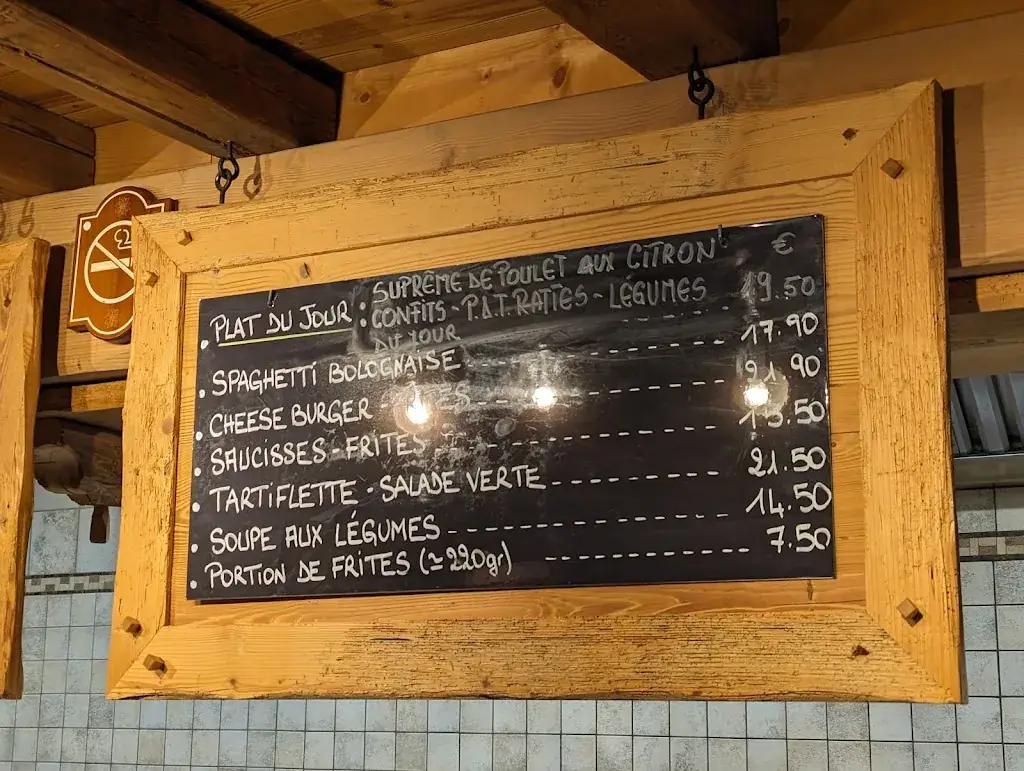 €
PLAT DU JOUR : SUPRÊME DE POULET AUX CITRON
CONFITS - P.D.T. RATTES - LÉGUMES 19.50
DU JOUR
SPAGHETTI BOLOGNAISE 17.90
CHEESE BURGER - 21.90
SAUCISSES - FRITES 13.50
TARTIFLETTE - SALADE VERTE 21.50
SOUPE AUX LÉGUMES 14.50
PORTION DE FRITES (≃220gr) 7.50